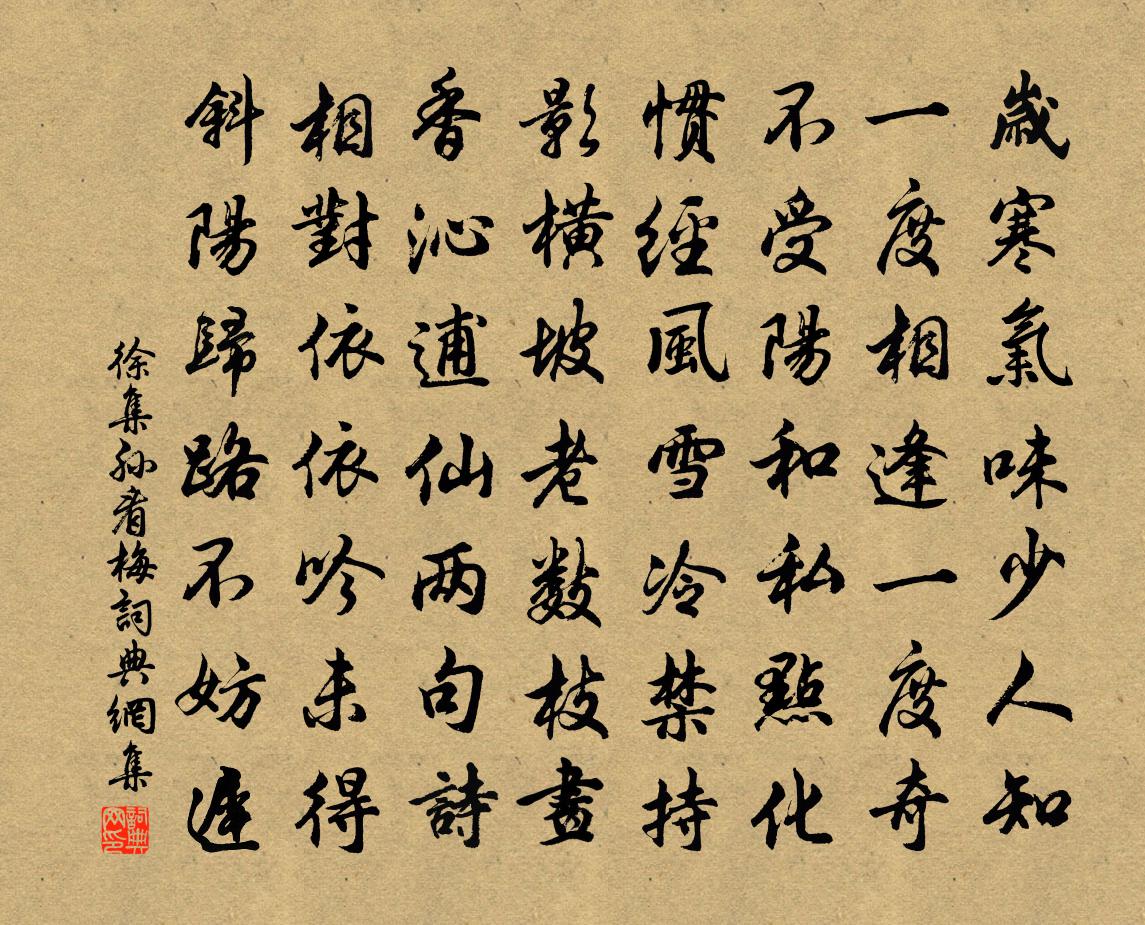 歲寒氣味少人知
一度相逢一度奇
不受陽和私點化
慣經風雪冷禁持
影橫坡老數枝畫
香沁逋仙两句詩
相對依依吟未得
斜陽歸路不妨遲
徐集孙看梅詞典網集
詞典网印